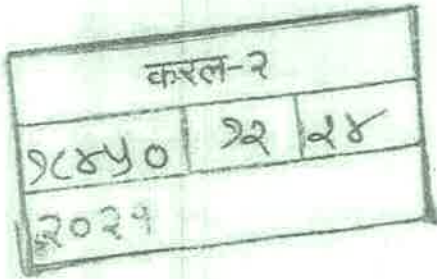 करल-२
१८४५० १२ २४
२०२१